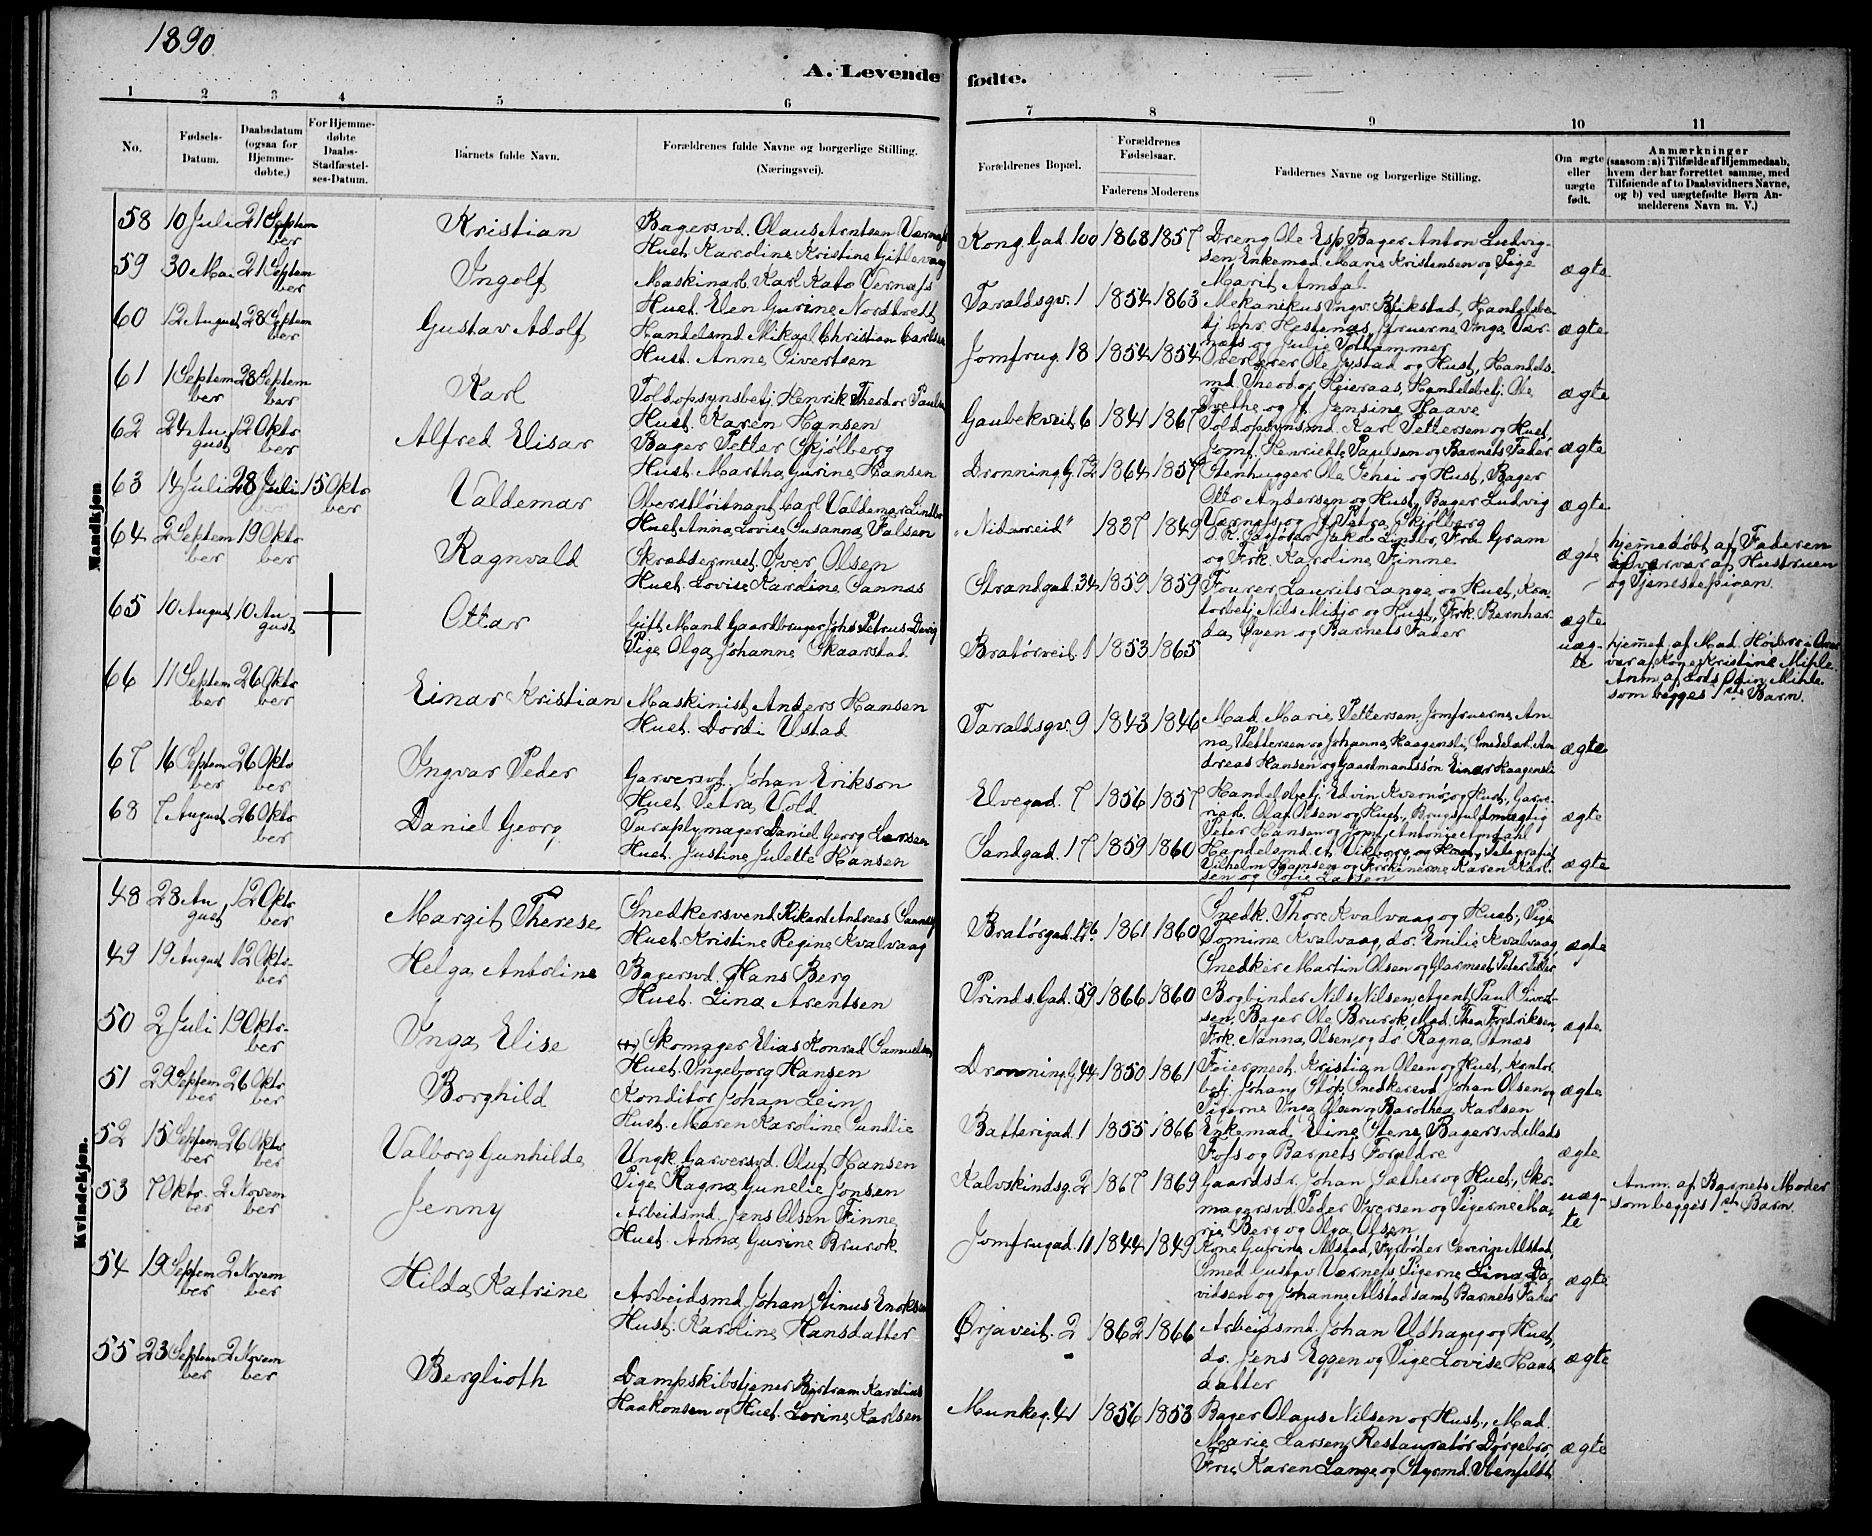 1890.
A. Levende fødte.
1 2 3 4 5 6 7 8 9 10 11
No.
Fødsels-Datum.
Daabsdatum (ogsaa for Hjemmedøbte.)
For Hjemmedøbte Daabs-Stadfæstelses-Datum.
Barnets fulde Navn.
Forældrenes fulde Navne og borgerlige Stilling.
(Næringsvei).
Forældrenes Bopæl.
Forældrenes Fødselsaar.
Faderens Moderens
Faddernes Navne og borgerlige Stilling.
Om ægte eller uægte født.
Anmærkninger
(saasom: a) i Tilfælde af Hjemmedaab, hvem der har forrettet samme, med Tilføiende af to Daabsvidners Navne, og b) ved uægtefødte Børn Anmelderens Navn m. V.)
Mandkjøn
58 10 Juli 21 September Kristian
Bagersvd. Olaus Arntsen
Hust. Karoline Kristine
Kong. Gad. 100 1868 1857
Dreng Ole Esp, Bager Anton Ludvigsen, Enkemad. Marie Kristensen og Pige
Marit Amdal
ægte
59 30 Mai 21 September Ingolf
Maskinarb. Karl Kato Vernæs
Hust. Elen Gurine
Taraldsgv. 1 1854 1863
Mekanikus Ingv. Blikstad, Handelsbetj. Chr. Hestenæs, Fruerne Inga Værnæs og Julie
ægte
60 12 August 28 September Gustav Adolf
Handelsmd. Mikael Christian Carlsen
Hust. Anne Sivertsen
Jomfrug. 18 1854 1854
Overlærer Ole Jystad og Hust, Handelsmd. Theodor Heieraas, Handelsbetj. Ole
og J. Jensine Haave
ægte
61 1 September 28 September Karl
Toldopsynsbetj. Henrik Theodor Paulsen
Hust. Karen Hansen
Gaubekveit 6 1841 1867
Toldopsynsmd. Karl Pettersen og Hust,
Jomf. Henriette Paulsen og Barnets Fader
ægte
62 24 August 12 Oktober Alfred Elisar
Bager Petter Skjølberg
Hust. Martha Gurine Hansen
Dronning. G. 72 1864 1857
Stenhugger Ole og Hust, Bager
Otto Andersen og Hust, Bager Ludvig
Værnæs og J. Petra Skjølberg
ægte
63 14 Juli 28 Juli 15 Oktober Valdemar
Oberstløitnant Carl Valdemar
Hust. Anna Lovise Susanna Falsen
"Nidareid" 1837 1849
Jakob Lindbo, Fru Gram
og Frk. Karoline Finne
ægte
hjemmedøbt af Faderen
Hustruen
og Tjenestepigen.
64 2 September 19 Oktober Ragnvald
Skræddermest. Iver Olsen
Hust. Lovise Karoline Sannæs
Strandgad. 34 1859 1859
Fourer Laurits Lange og Hust, Kontorbetj. Nils Midjo og Hust, Frk. Bernharda Øyen og Barnets Fader
ægte
65 10 August 10 August Ottar
Gift Mand Gaardbruger Johs Petrus
Pige Olga Johanne Skaarstad
Bratørveit 1 1853 1865
uægte
hjemmed. af Mad. Høibro
Kone Kristine Mihle.
Anm. af Lods Odin Mihle
som begges 1ste Barn.
66 11 September 26 Oktober Einar Kristian
Maskinist Anders Hansen
Hust. Dordi Ustad
Taraldsgv. 9 1843 1846
Mad. Marie Pettersen, Jomfruerne Anna Pettersen og Johanna Haagensli, Smedelærl. Andreas Hansen og Gaardmandssøn Einar Haagensli
ægte
67 16 September 26 Oktober Ingvar Peder
Garversvd. Johan Erikson
Hust. Petra Vold
Elvegad. 7 1856 1857
Handelsbetj. Edvin Kvernø og Hust, Garveriarb. Olaf Olsen og Hust, Brugsfuldmægtig
Peter Hansen og Jomf. Antonie Amdahl
ægte
68 7 August 26 Oktober Daniel Georg
Paraplymager Daniel Georg Larsen
Hust. Justine Julette Hansen
Sandgad. 17 1859 1860
Handelsmd. A. Vikborg og Hust, Telegrafist
Vilhelm Hansen og Frøknerne Karen Karlsen og Sofie Larsen
ægte
Kvindekjøn.
48 28 August 12 Oktober Margit Therese
Snedkersvend Rikard Andreas
Hust. Kristine Regine Kvalvaag
Bratørgad. 1861 1860
Snedk. Thore Kvalvaag og Hust, Pige
Tomine Kvalvaag, do. Emilie Kvalvaag,
Snedker Martin Olsen og Glarmest. Peter
ægte
49 19 August 12 Oktober Helga Antoline
Bagersvd. Hans Berg
Hust. Lina Arentsen
Prinds. Gad. 59 1866 1860
Bogbinder Nils Nilsen, Agent Paul Sivertsen, Bager Ole Brurok, Mad. Thea Fredriksen,
Frk. Nanna Olsen og do. Ragna
ægte
50 2 Juli 19 Oktober Inga Elise
Skomager Elias Konrad Samuelsen
Hust. Ingeborg Hansen
Dronning. G. 44 1850 1861
Feiermest. Kristian Olsen og Hust, Kontorbetj. Johan Støp, Snedkersvd. Johan Olsen og
Pigerne Inga Olsen og Barothea Karlsen
ægte
51 29 September 26 Oktober Borghild
Konditor Johan Lein
Hust. Maren Karoline Sundlie
Batterigad. 1 1855 1866
Enkemad. Eline Stene, Bagersvd. Mads
Fofs og Barnets Forældre
ægte
52 15 September 26 Oktober Valborg Gunhilde
Ungk. Garversvd. Oluf Hansen
Pige Ragna Gunelie Jonsen
Kalvskindsg. 2 1867 1869
Gaardsdr. Johan Sæther og Hust, Skomagersvd. Peder Iversen og Pigerne Marie Berg og Olga Olsen
uægte
Anm. af Barnets Moder
som begges 1ste Barn.
53 7 Oktober 2 November Jenny
Arbeidsmd. Jens Olsen Finne
Hust. Anna Gurine Brurok
Jomfrugad. 11 1844 1849
Kone Gurine Alstad, Fyrbøder Severin Alstad,
Smed Gustav Værnes, Pigerne Lina Davidsen og Johanne Alstad samt Barnets Fader
ægte
54 19 September 2 November Hilda Katrine
Arbeidsmd. Johan Stinus Enoksen
Hust. Karoline Hansdatter
Ørjaveit. 2 1862 1866
Arbeidsmd. Johan Udhaug og Hust,
do. Jens Eggen og Pige Lovise Hansdatter
ægte
55 23 September 2 November Berglioth
Dampskibstjener Bertram Karelius
Haakonsen og Hust. Lorine Karlsen
Munkeg. 41 1856 1853
Bager Olaus Nilsen og Hust, Mad.
Marie Larsen, Restauratør
Frk. Karen Lange og Styrmd. Stenfeldt
ægte